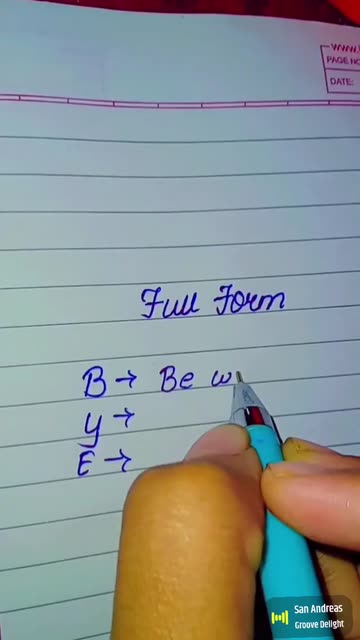 WWW.
PAGE NO
DATE:
Full Form
B → Be w
y →
E →
San Andreas
Groove Delight